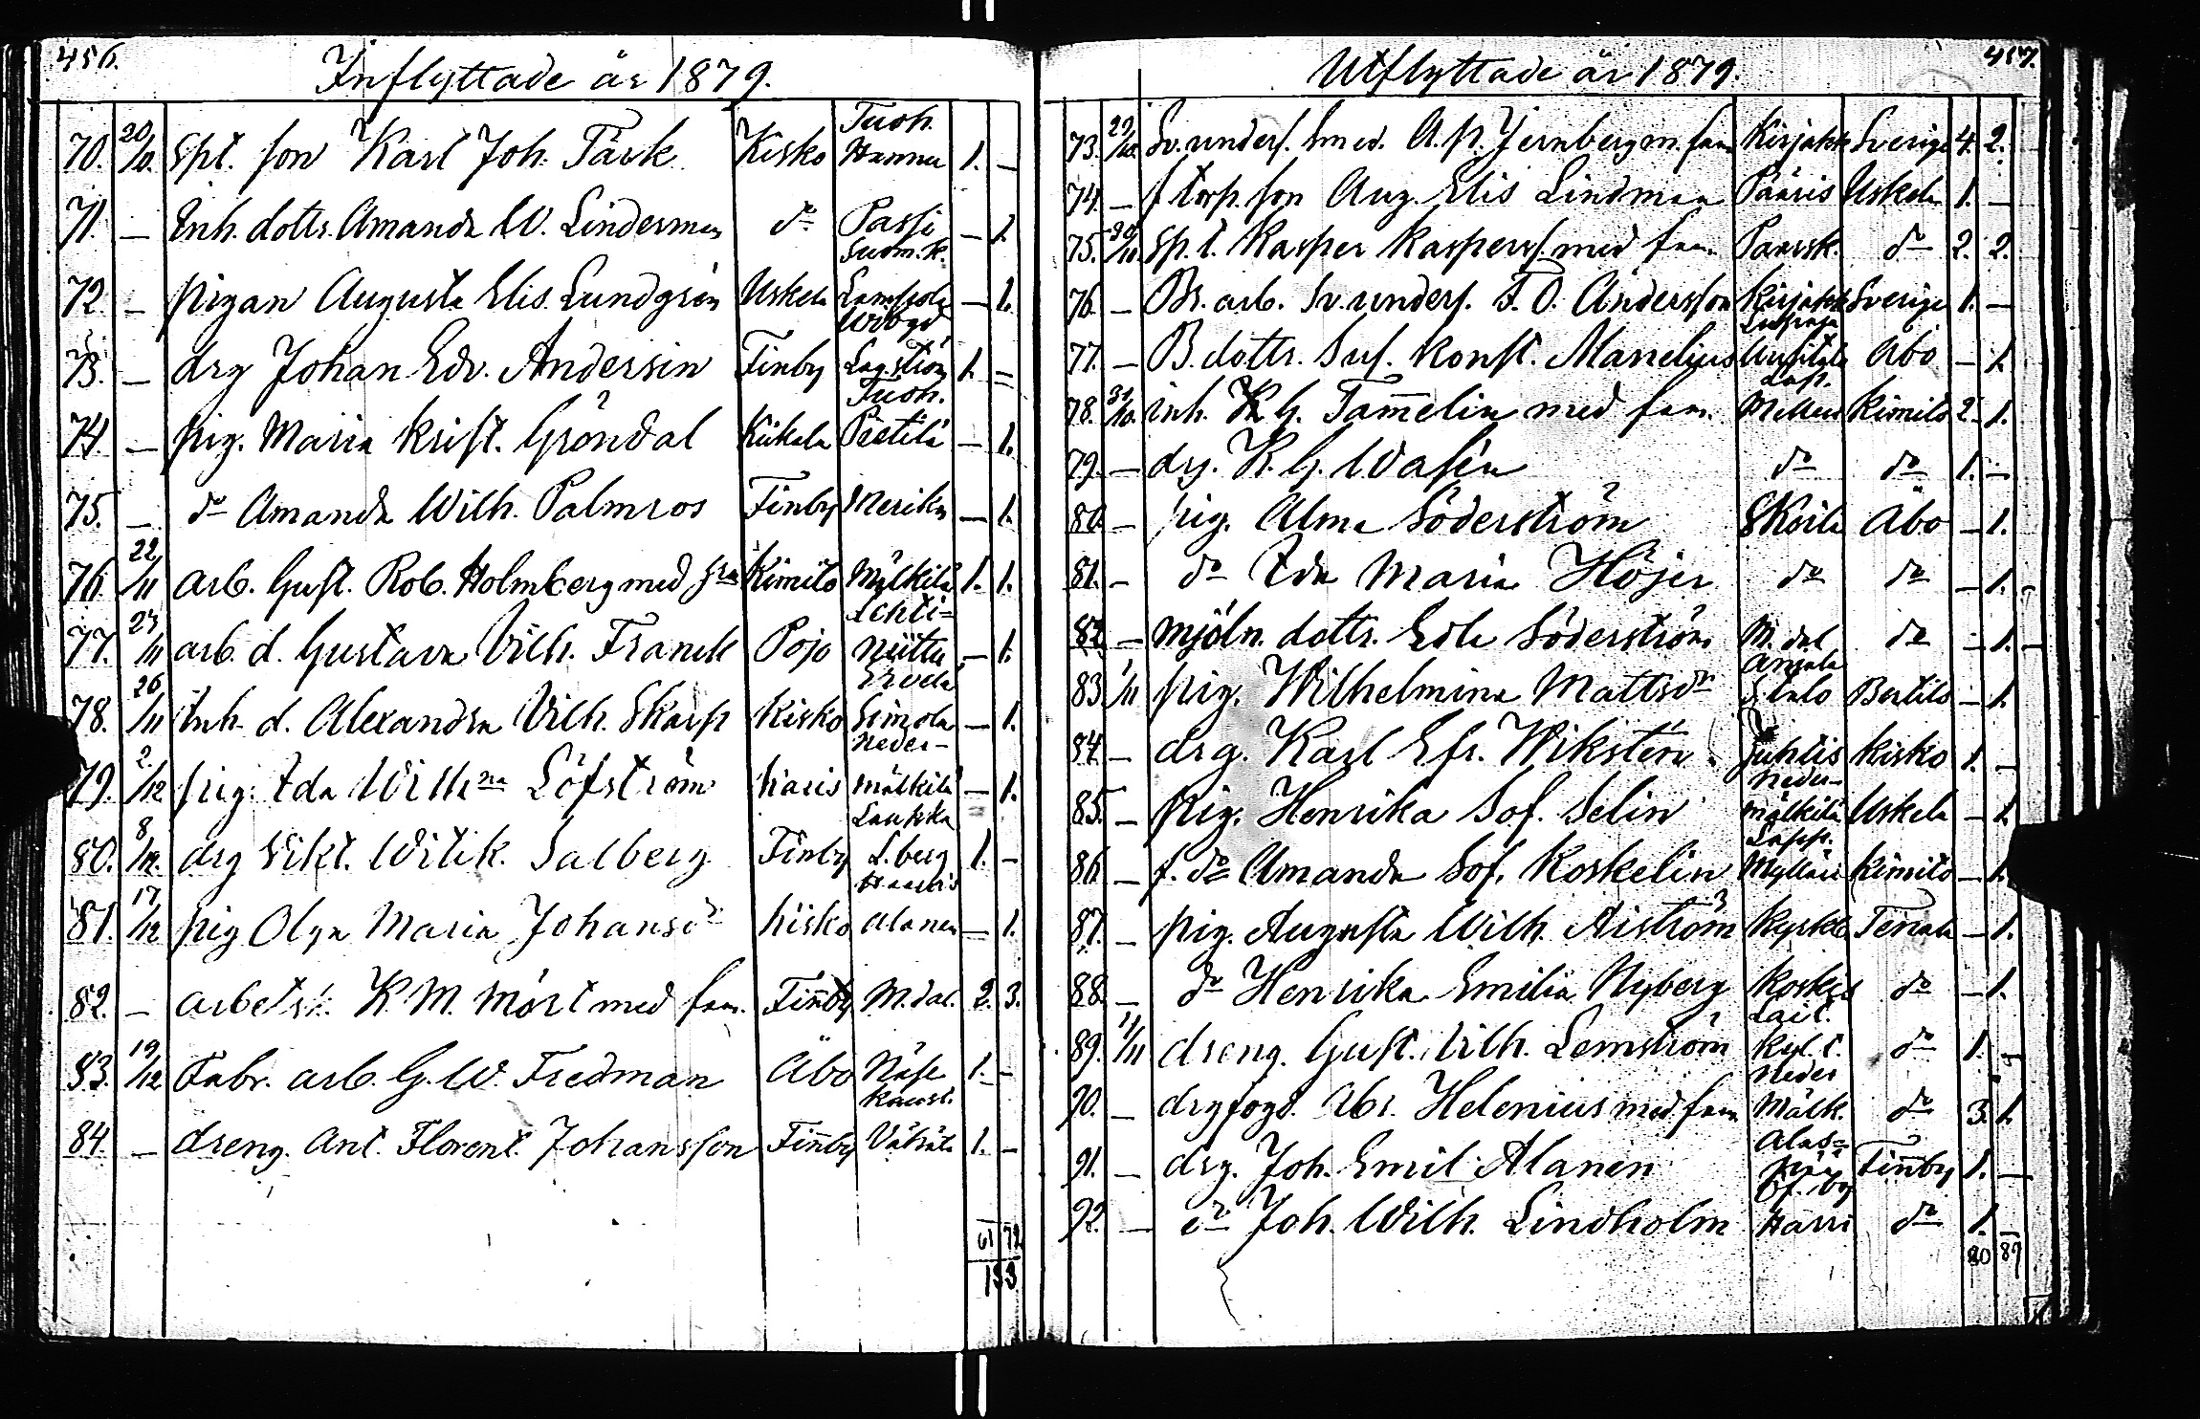 456.
Inflyttade år 1879.
70. 20/10. Spt. son Karl Joh. Täck Kisko Tuoh. Hannu 1. —
71. — Inh. dottr. Amanda W. Linderman do Passi — 1.
72. — pigan Augusta Elis. Lundgrén Uskela Suom.k. Lampola — 1.
73. — drg Johan Edv. Andersin Finby Wibyd Lagström 1. =
74. — pig. Maria Krist. Gröndal Kiikala Tuoh. Pietilä — 1.
75. — do Amanda Wilh. Palmros Finby Meriky — 1.
76. 22/11 arb. Gust. Rob. Holmberg med hru Kimito Mälkilä 1. 1.
77. 23/11 arb. d. Gustava Vilh. Franck Pojo Lehti= niittu — 1.
78. 26/11 Inh. d. Alexandra Vilh. Skarp Kisko Ervelä Simola — 1.
79. 2/12 pig. Ida Wilhna Löfström Karis Neder- mälkilä — 1.
80. 8/12. drg Vikt. Witik. Salberg Finby Laukka L.berg 1. —
81. 17/12 pig Olga Maria Johansdr Kisko Alanen — 1.
82. — arbetsk. K. M. Mört med fam. Finby M.dal. 2. 3.
83. 19/12 Fabr. arb. G. W. Fredman Åbo Näse 1. —
84. — dreng. Ant. Florent. Johansson Finby Vähätä 1. —
61 72
133
457.
Utflyttade år 1879.
73. 29/10. Sv. unders. smed. A. P. Jernberg m. fam Kirjakk Sverige 4. 2.
74. — f torp. son Aug. Elis Lindman Pääris Uskela 1. —
75. 30/10. Sp. t. Kasper Kaspers. med fam. Paarsk. do 2. 2.
76. — Br. arb. Sv. unders. F. O. Andersson Kirjakk Sverige 1. —
77. — B. dottr. Sus. Konst. Manelius Åbo — 1.
78. 31/10. inh. K. G. Tammelin med fam. Kimito 2. 1.
79. — drg. K. G. Wasén do do 1. —
80. — pig. Alma Söderström Skoila Åbo — 1.
81. — do Ida Maria Höjer do do — 1.
82. — mjöln. dottr. Edla Söderström M. dal do — 1. —
83. 1/11 pig. Wilhelmina Mattsdr Bertils — 1.
84. — drg. Karl Efr. Wikstén Juhtis Kisko 1. —
85. — pig. Henrika Sof. Selin Neder- mälkilä Uskela — 1.
86. — f. do Amanda Sof. Koskelin Mylläri Kimito — 1.
87. — pig. Augusta Wilh. Åiström Kyrkb Tenala — 1.
88. — do Henrika Emilia Nyberg Koskis do — 1.
89. 11/11 dreng. Gust. Vilh. Lemström Lait. Kyl. t. do 1. —
90. — drgfogd. Abr. Helenius med fam Neder Mälk. do 3. 1.
91. — drg. Joh. Emil Alanen Alas= Finby 1. —
92. — do Joh. Wilh. Lindholm Öf. by Harri do 1. —
80 89